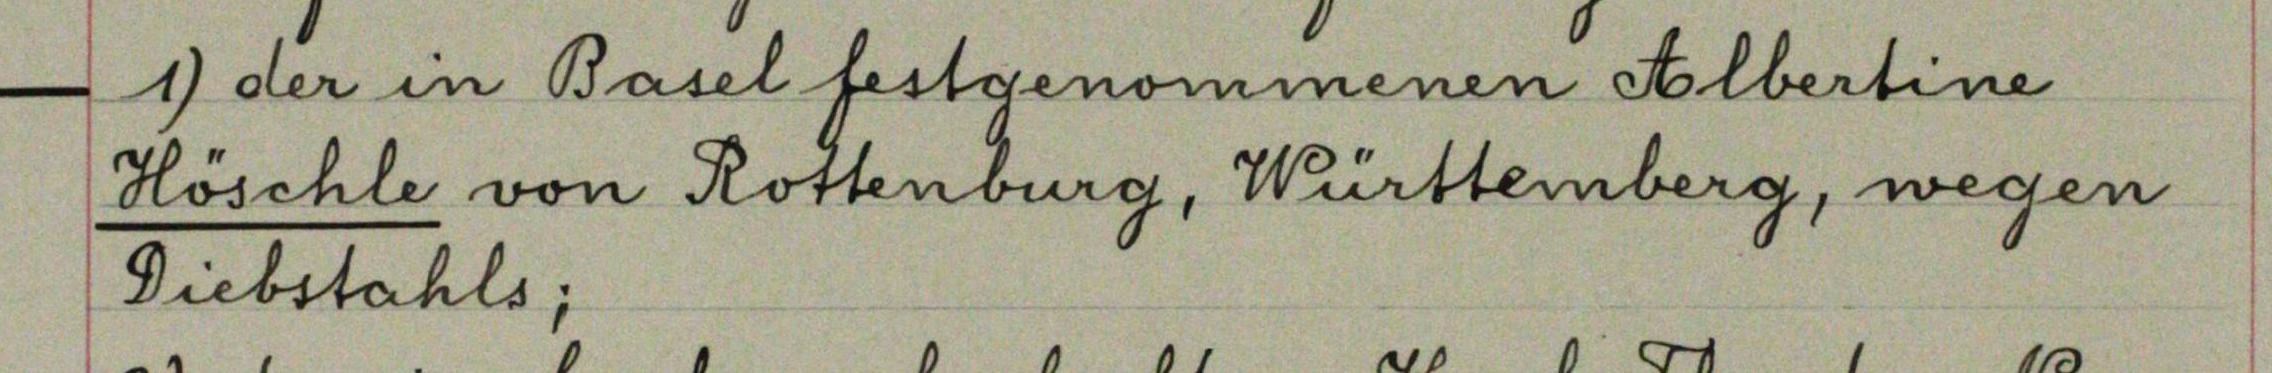 1) der in Basel festgenommenen Albertine
Höschle von Rottenburg, Württemberg, wegen
Diebstahls;